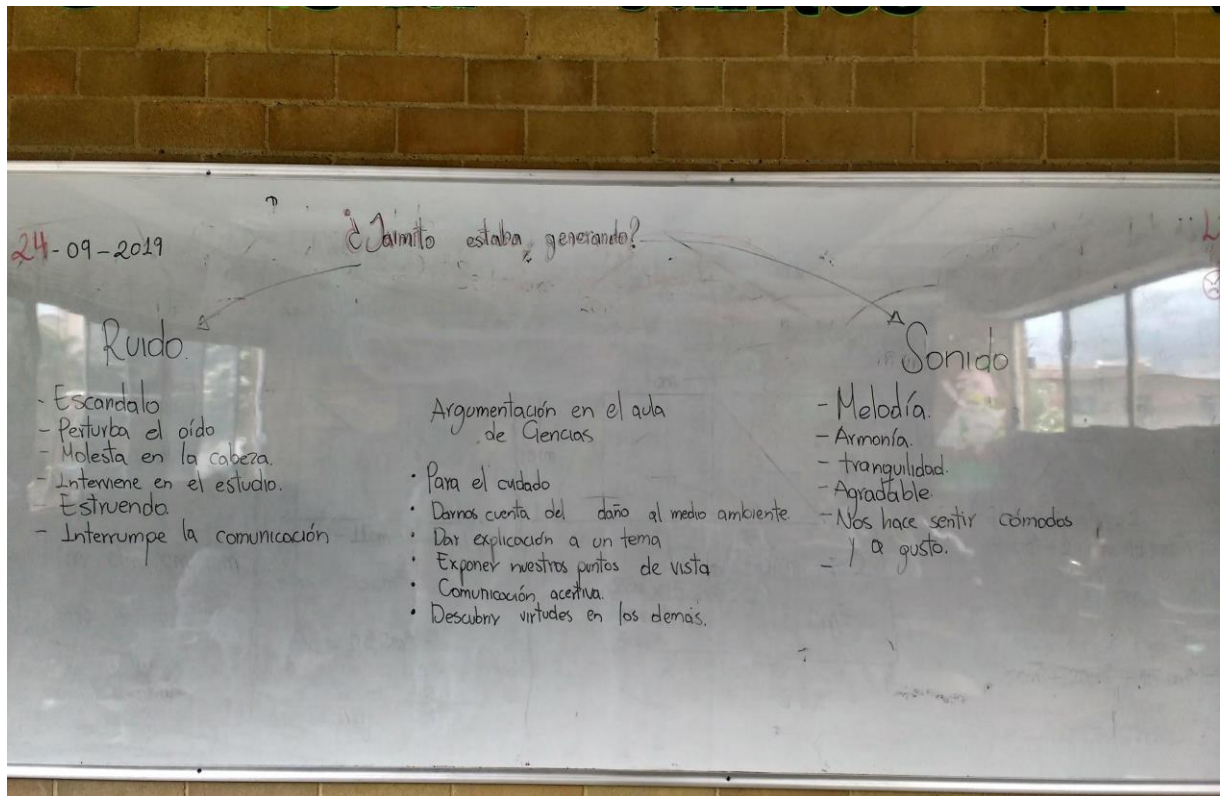 24-09-2019
¿Jaimito estaba generando?
Ruido.
- Escandalo
- Perturba el oído
- Molesta en la cabeza.
- Interviene en el estudio.
- Estruendo.
- Interrumpe la comunicación
Argumentación en el aula
de Ciencias
· Para el cuidado
· Darnos cuenta del daño al medio ambiente.
· Dar explicación a un tema
· Exponer nuestros puntos de vista
· Comunicación acertiva.
· Descubrir virtudes en los demás.
Sonido
- Melodía.
- Armonía.
- tranquilidad.
- Agradable.
- Nos hace sentir cómodos
y a gusto.
-